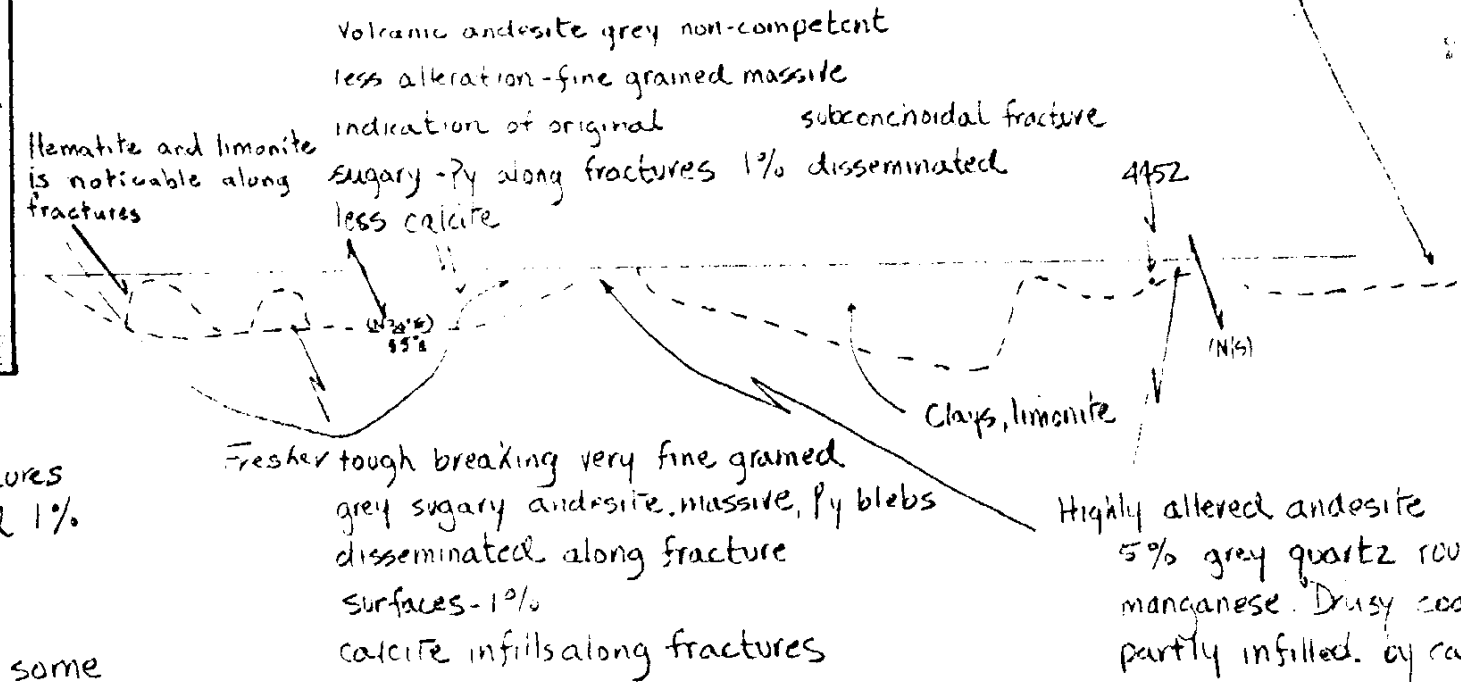 Volcanic andesite grey non-competent
less alteration-fine grained massive
indication of original subconchoidal fracture
sugary - Py along fractures 1% disseminated
less calcite
Hematite and limonite
is noticable along
fractures
4452
(N/S)
Clays, limonite
Fresher tough breaking very fine grained
grey sugary andesite, massive, Py blebs
disseminated along fracture
surfaces - 1%
calcite infills along fractures
ures
1%
some
Highly altered andesite
5% grey quartz
manganese. Drusy
partly infilled. by